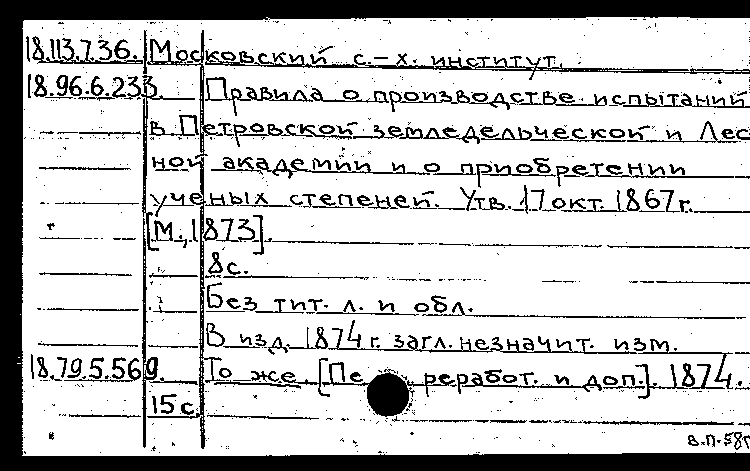 18.113.7.36. Московский с.-х. институт.
18.96.6.233. Правила о производстве испытаний
в Петровской земледельческой и Лес
ной академии и о приобретении
ученых степеней. Утв. 17 окт. 1867 г.
[М., 1873].
8с.
Без тит. л. и обл.
В изд. 1874 г. загл. незначит. изм.
18.79.5.569. То же. [Пе реработ. и доп.]. 1874.
15 с.
в.п.58г